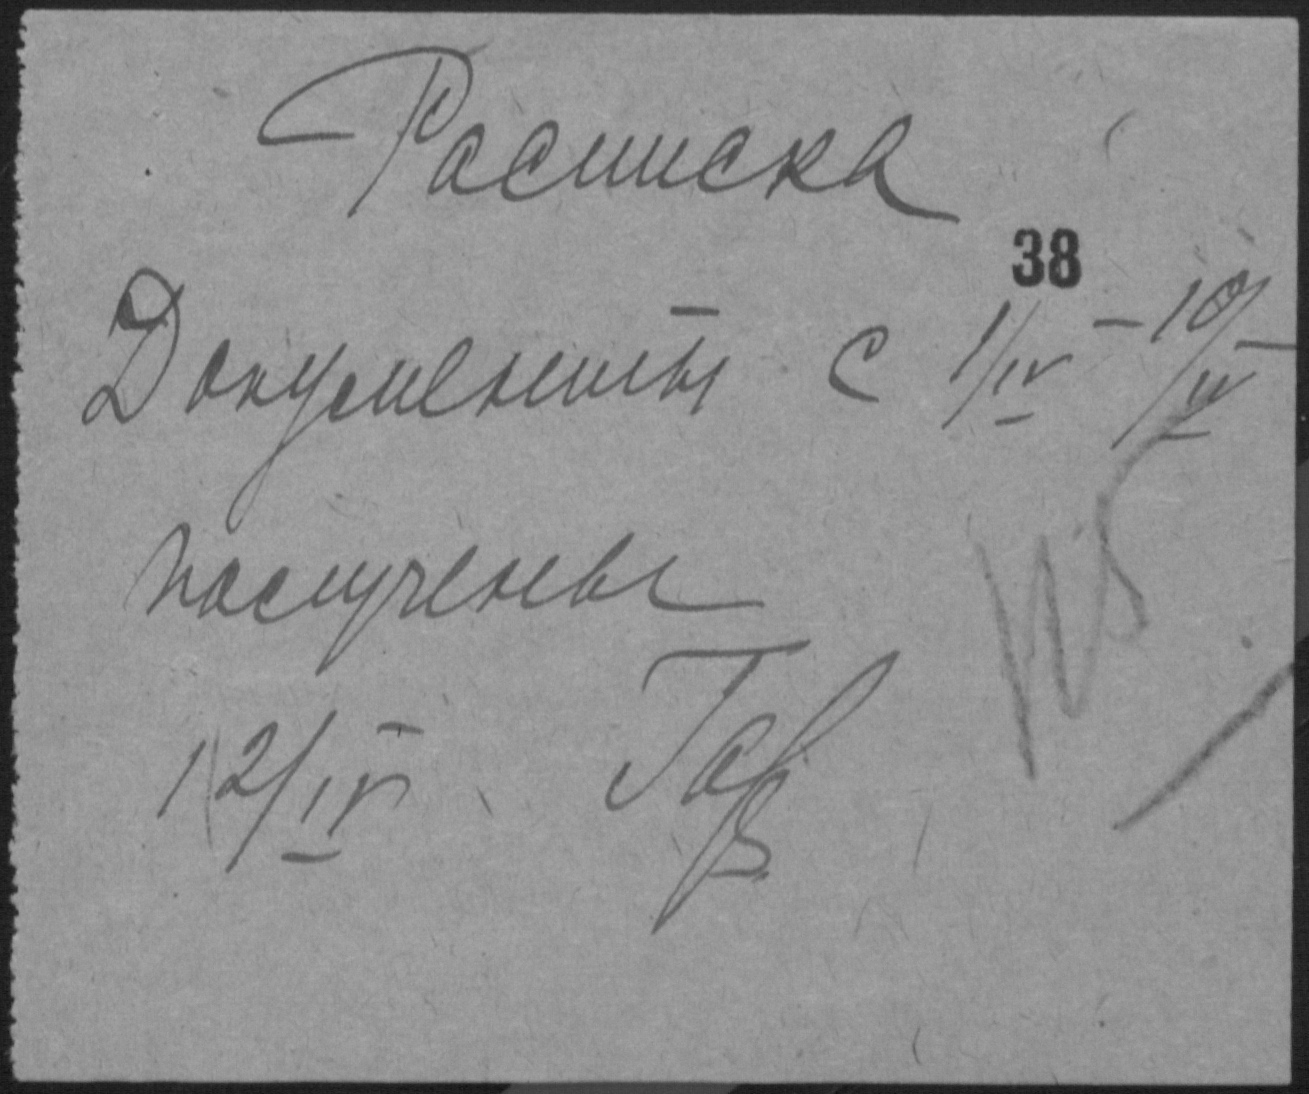 Расписка
38
Документы с 1/IV – 10/IV
получены
12/IV